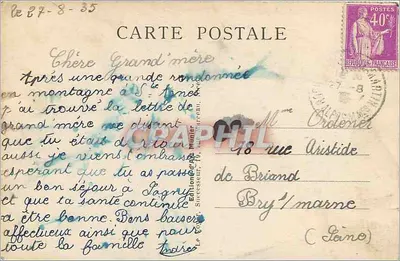 le 27-8-35
CARTE POSTALE
POSTES
40c
Chère Grand'mère
Après une grande randonnée
en montagne à Ste
j'ai trouvé la lettre de
grand'mère me disant
que tu était de retour
aussi je viens t'embrasser
espérant que tu as passé
un bon séjour à Fagny
et que ta santé continue
a être bonne. Bons baisers
affectueux ainsi que pour
toute la famille
CPAPHIL
Ordener
18 rue Aristide
de Briand
Bry s/marne
(Seine)